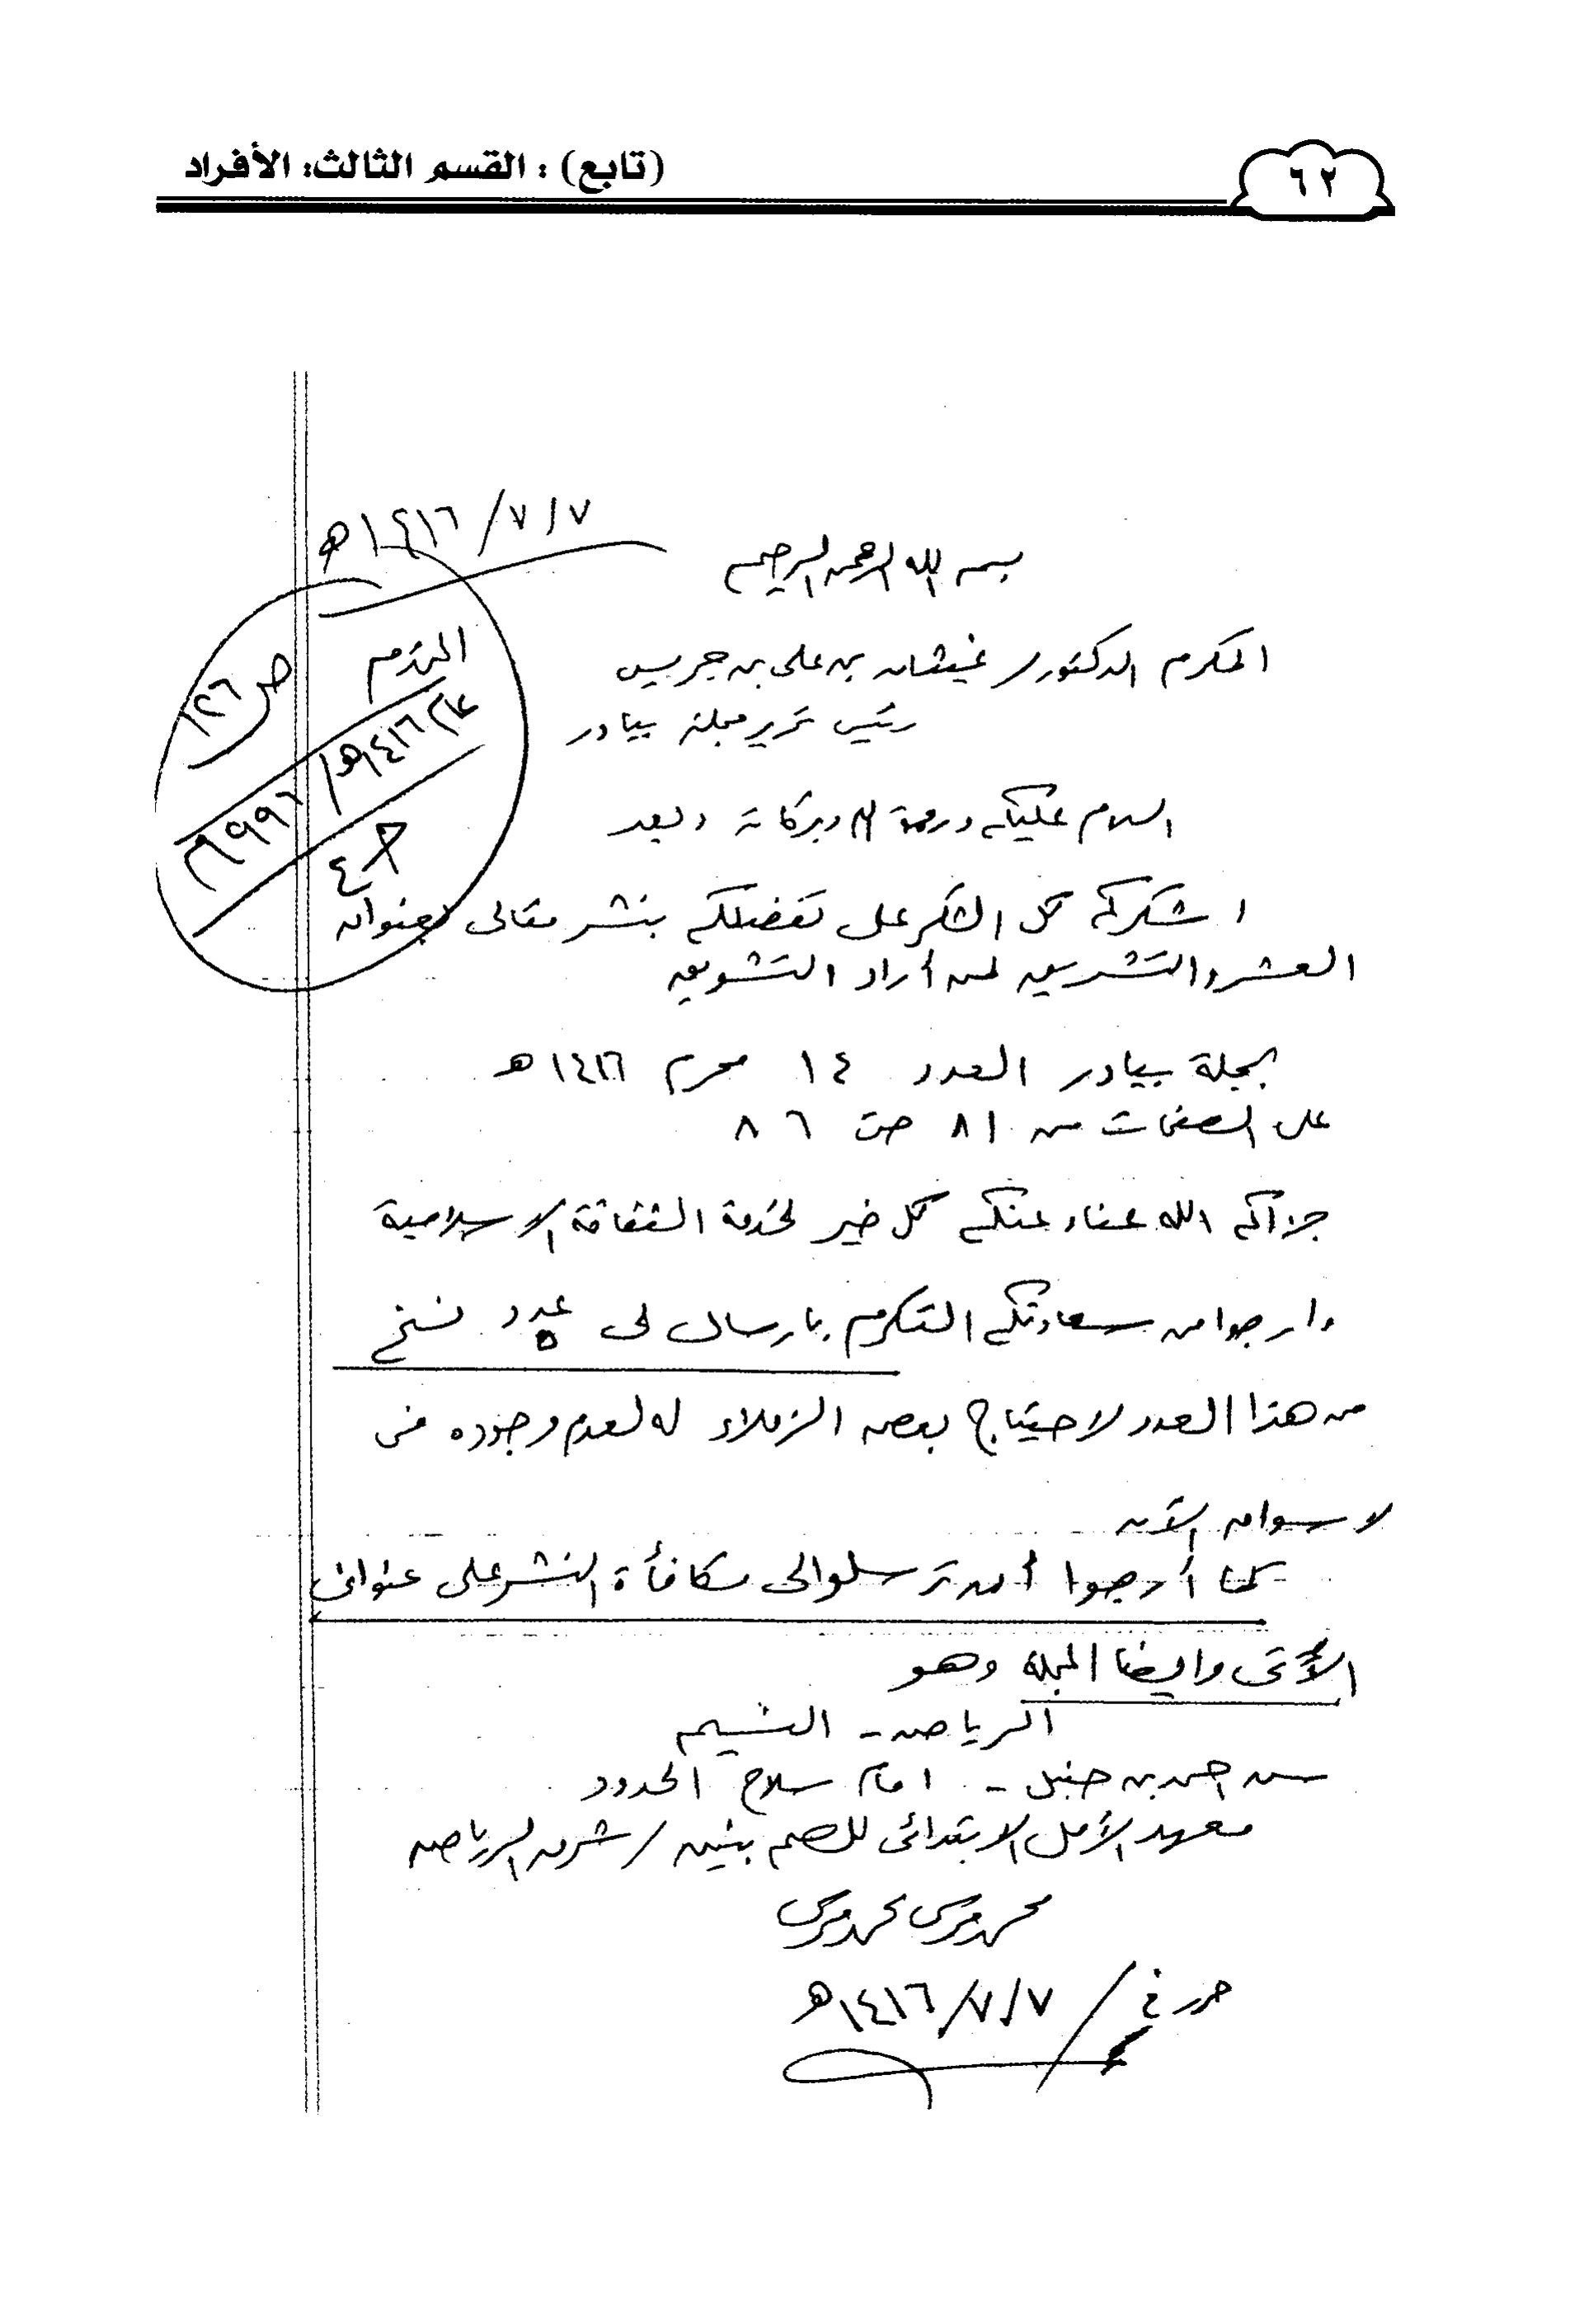 (تابع) : القسم الثالث: الأفراد
٦٢
٧/٧/١٤١٦هـ
بسم الله الرحمن الرحيم
المكرم الدكتور / غيثان بن على بن جريس
رئيس تحرير مجلة بيادر
السلام عليكم ورحمة الله وبركاته وبعد
اشكركم كل الشكر على تفضلكم بنشر مقالى بعنوان
العشر والتشريع لمن أراد التشويق
بمجلة بيادر العدد ١٤ محرم ١٤١٦هـ
على الصفحات من ٨١ حتى ٨٦
جزاكم الله عنا وعنكم كل خير لخدمة الثقافة الاسلامية
وارجوا من سعادتكم التكرم بارسال لى عدد ٥ نسخ
من هذا العدد لاحتياج بعض الزملاء له لعدم وجوده فى
لاسواق الآن
كما أرجوا أن ترسلوا لى مكافأة النشر على عنوانى
الآتى وايضا المجلة وهو
الرياض - النسيم
احمد بن حنبل - امام سلاح الحدود
معهد الأمل الابتدائى للصم بنين / شرق الرياض
محمد مرسى محمد مرسى
حرر في / ٧/٧/١٤١٦هـ
ص ١٢٦
١٤١٦هـ / ١٩٩٦م